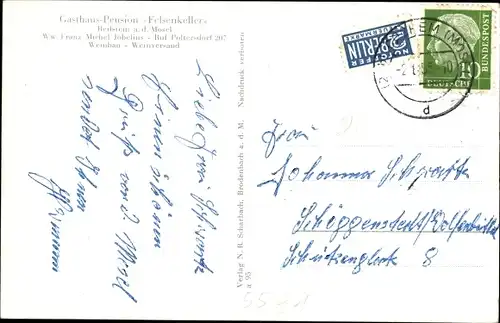 Gasthaus-Pension »Felsenkeller«
Beilstein a.d. Mosel
Ww. Franz Michel Jobelius - Ruf Poltersdorf 207
Weinbau - Weinversand
Liebe Frau Schwartz
Einen schönen
Gruß von d. Mosel
sendet Ihnen
Verlag N. B. Scharlach, Brodenbach a. d. M. Nachdruck verboten
a 95
NOTOPFER
2 BERLIN
STEUERMARKE
d
10
DEUTSCHE
BUNDESPOST
Frau
Johanna Schwartz
Schöppenstedt/Wolfenbüttel
8